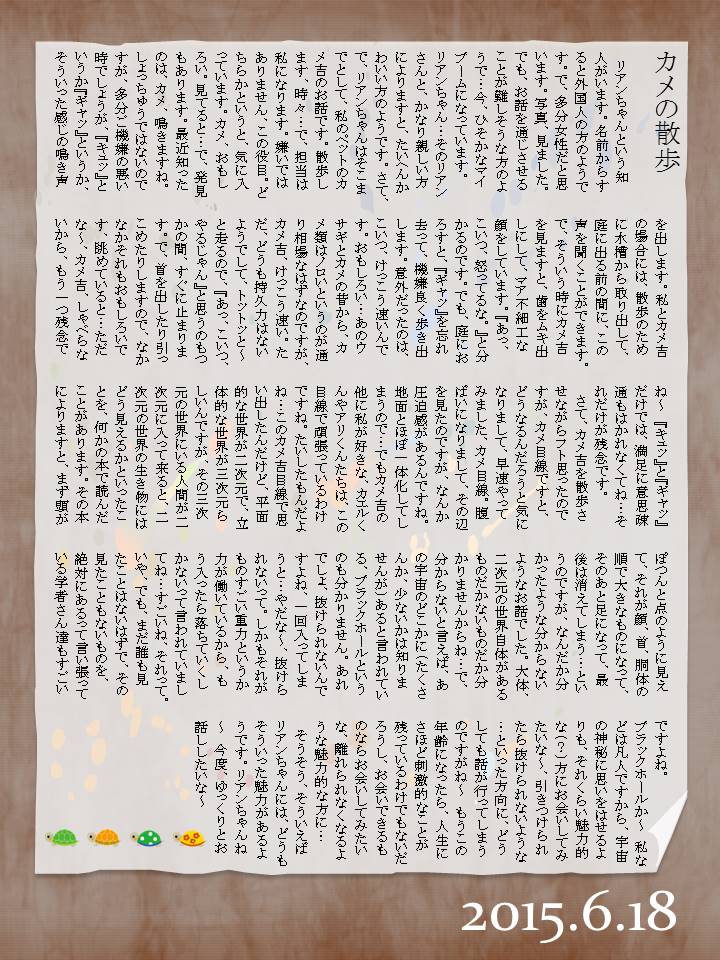 カメの散歩
　リアンちゃんという知
人がいます。名前からす
ると外国人の方のようで
す。で、多分女性だと思
います。写真、見ました。
でも、お話を通じさせる
ことが難しそうな方のよ
うで…今、ひそかなマイ
ブームになっています。
リアンちゃん…そのリアン
さんと、かなり親しい方
によりますと、たいへんか
わいい方のようです。さて、
で、リアンちゃんはそこま
でとして、私のペットのカ
メ吉のお話です。散歩し
ます、時々…で、担当は
私になります。嫌いでは
ありません、この役目。ど
ちらかというと、気に入
っています。カメ、おもし
ろい。見てると…で、発見
もあります。最近知った
のは、カメ、鳴きますね。
しょっちゅうではないので
すが、多分ご機嫌の悪い
時でしょうが、『キュッ』と
いうか『ギャッ』というか、
そういった感じの鳴き声
を出します。私とカメ吉
の場合には、散歩のため
に水槽から取り出して、
庭に出る前の間に、この
声を聞くことができます。
で、そういう時にカメ吉
を見ますと、歯をムキ出
しにして、マア不細工な
顔をしています。『あっ、
こいつ、怒ってるな。』と分
かるのです。でも、庭にお
ろすと、『ギャッ』を忘れ
去って、機嫌良く歩き出
します。意外だったのは、
こいつ、けっこう速いんで
す。おもしろい…あのウ
サギとカメの昔から、カ
メ類はノロいというのが通
り相場なはずなのですが、
カメ吉、けっこう速い。た
だ、どうも持久力はない
ようでして、トットッと～
と走るので、『あっ、こいつ、
やるじゃん』と思うのもつ
かの間、すぐに止まりま
す。で、首を出したり引っ
こめたりしますので、なか
なかそれもおもしろいで
す、眺めていると…ただ
な～、カメ吉、しゃべらな
いから、もう一つ残念で
ね～　『キュッ』と『ギャッ』
だけでは、満足に意思疎
通もはかれなくてね…そ
れだけが残念です。
　さて、カメ吉を散歩さ
せながらフト思ったので
すが、カメ目線ですと、
どうなるんだろうと気に
なりまして、早速やって
みました、カメ目線。腹
ばいになりまして、その辺
を見たのですが、なんか
圧迫感があるんですね。
地面とほぼ一体化してし
まうので…でもカメ吉の
他に私が好きな、カエルく
んやアリくんたちは、この
目線で頑張っているわけ
ですね。たいしたもんだよ
ね…このカメ吉目線で思
い出したんだけど、平面
的な世界が二次元で、立
体的な世界が三次元ら
しいんですが、その三次
元の世界にいる人間が二
次元に入って来ると、二
次元の世界の生き物には
どう見えるかといったこ
とを、何かの本で読んだ
ことがあります。その本
によりますと、まず頭が
ぽつんと点のように見え
て、それが顔、首、胴体の
順で大きなものになって、
そのあと足になって、最
後は消えてしまう…とい
うのですが、なんだか分
かったような分からない
ようなお話でした。大体、
二次元の世界自体がある
ものだかないものだか分
かりませんからね…で、
分からないと言えば、あ
の宇宙のどこかに（たくさ
んか、少ないかは知りま
せんが）あると言われてい
る、ブラックホールという
のも分かりません。あれ
でしょ、抜けられないんで
すよね、一回入ってしま
うと…やだな～、抜けら
れないって。しかもそれが
ものすごい重力というか
力が働いているから、も
う入ったら落ちていくし
かないって言われていまし
てね…すごいね、それって。
いや、でも、まだ誰も見
たことはないはずで、その
見たこともないものを、
絶対にあるって言い張って
いる学者さん達もすごい
ですよね。
ブラックホールか～　私な
どは凡人ですから、宇宙
の神秘に思いをはせるよ
りも、それくらい魅力的
な（？）方にお会いしてみ
たいな～、引きつけられ
たら抜けられないような
…といった方向に、どう
しても話が行ってしまう
のですがね～　もうこの
年齢になったら、人生に
さほど刺激的なことが
残っているわけでもないだ
ろうし、お会いできるも
のならお会いしてみたい
な、離れられなくなるよ
うな魅力的な方に…
　そうそう、そういえば
リアンちゃんには、どうも
そういった魅力があるよ
うです。リアンちゃんね
～　今度、ゆっくりとお
話ししたいな～
2015.6.18